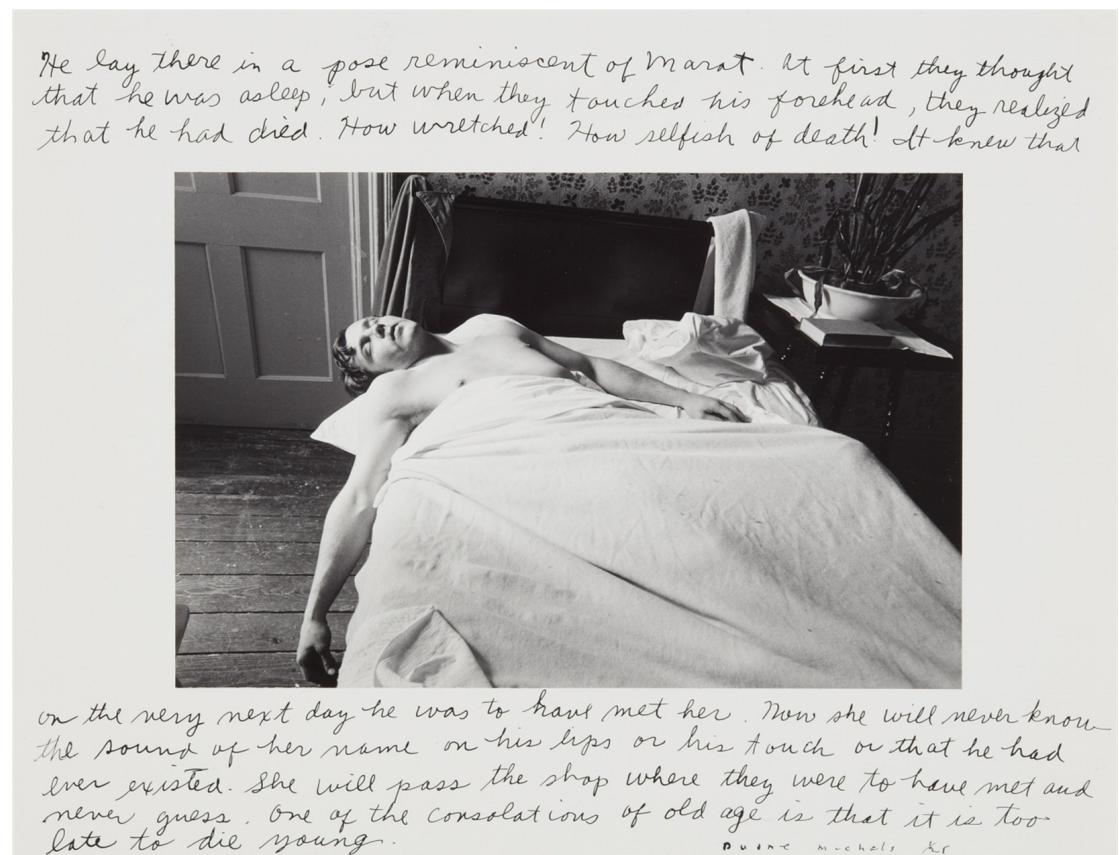 He lay there in a pose reminiscent of Marat. At first they thought
that he was asleep, but when they touched his forehead, they realized
that he had died. How wretched! How selfish of death! It knew that
on the very next day he was to have met her. Now she will never know
the sound of her name on his lips or his touch or that he had
ever existed. She will pass the shop where they were to have met and
never guess. One of the consolations of old age is that it is too
late to die young.
Duane Michals